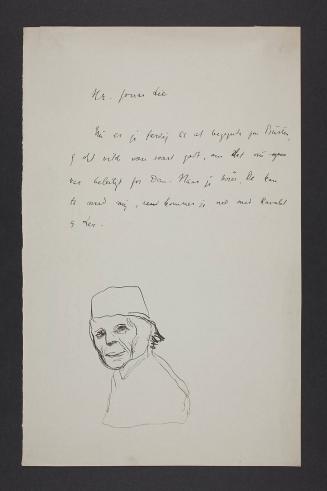 Hr. Jonas Lie
Nu er jeg færdig til at begynde paa Büsten,
og det vilde være svært godt, om det nu
var beleiligt for Dem. Naar jeg hører, De kan
ta mod mig, kommer jeg ned med
og Ler.